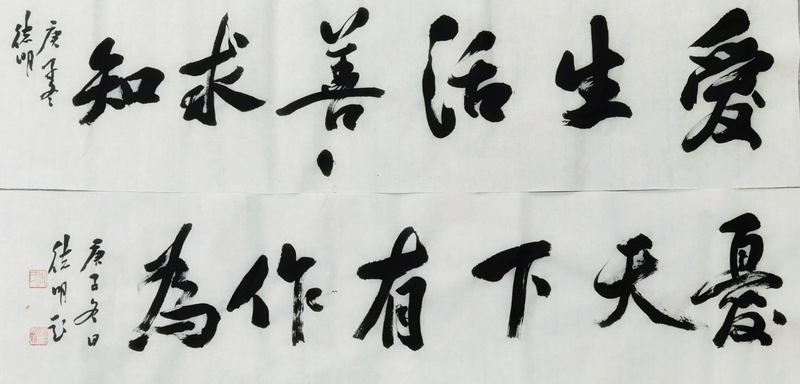 愛生活善求知
庚子冬
德明
憂天下有作為
庚子冬日
德明书